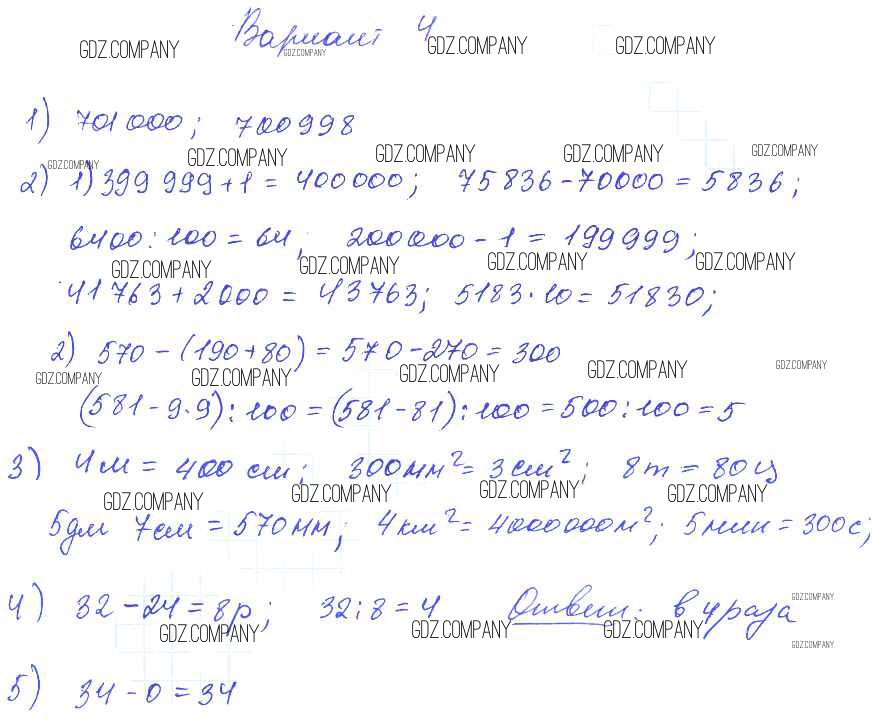 Вариант 4
GDZ.COMPANY GDZ.COMPANY GDZ.COMPANY GDZ.COMPANY
1) 701000; 700998
GDZ.COMPANY GDZ.COMPANY GDZ.COMPANY GDZ.COMPANY GDZ.COMPANY
2) 1) 399 999 + 1 = 400000; 75836 - 70000 = 5836;
6400 : 100 = 64; 200000 - 1 = 199999;
GDZ.COMPANY GDZ.COMPANY GDZ.COMPANY GDZ.COMPANY
41763 + 2000 = 43763; 5183 · 10 = 51830;
2) 570 - (190 + 80) = 570 - 270 = 300
GDZ.COMPANY GDZ.COMPANY GDZ.COMPANY GDZ.COMPANY GDZ.COMPANY
(581 - 9·9) : 100 = (581 - 81) : 100 = 500 : 100 = 5
3) 4м = 400 см; 300мм² = 3см²; 8т = 80ц
GDZ.COMPANY GDZ.COMPANY GDZ.COMPANY GDZ.COMPANY
5дм 7см = 570мм; 4км² = 4000000м²; 5мин = 300с;
4) 32 - 24 = 8р; 32 : 8 = 4 Ответ: в 4 раза
GDZ.COMPANY GDZ.COMPANY GDZ.COMPANY GDZ.COMPANY GDZ.COMPANY
5) 34 - 0 = 34